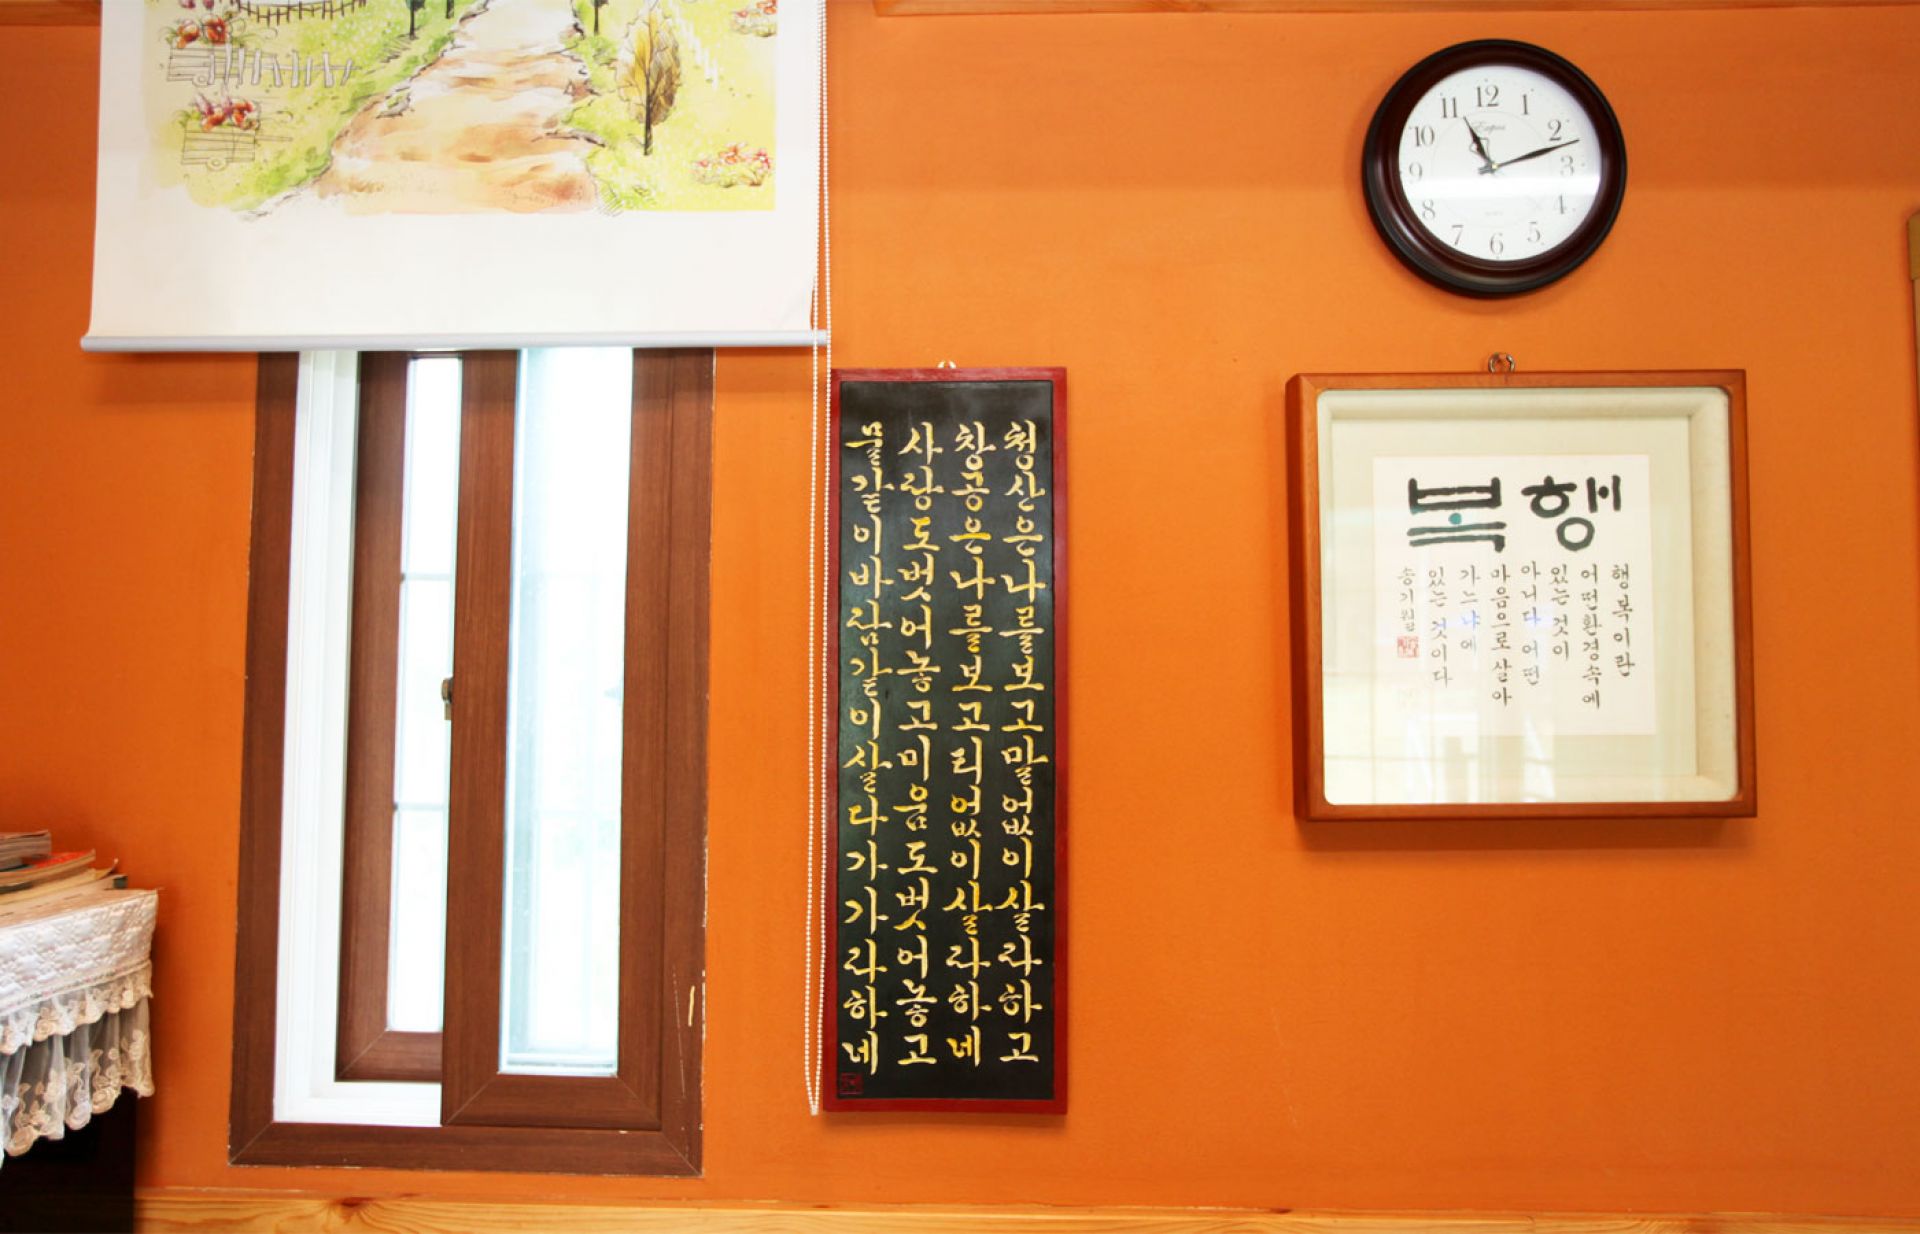 12
1
2
3
4
5
6
7
8
9
10
11
청산은나를보고말없이살라하고
창공은나를보고티없이살라하네
사랑도벗어놓고미움도벗어놓고
물같이바람같이살다가가라하네
행복
행복이란
어떤환경속에
있는것이
아니다 어떤
마음으로살아
가느냐에
있는것이다